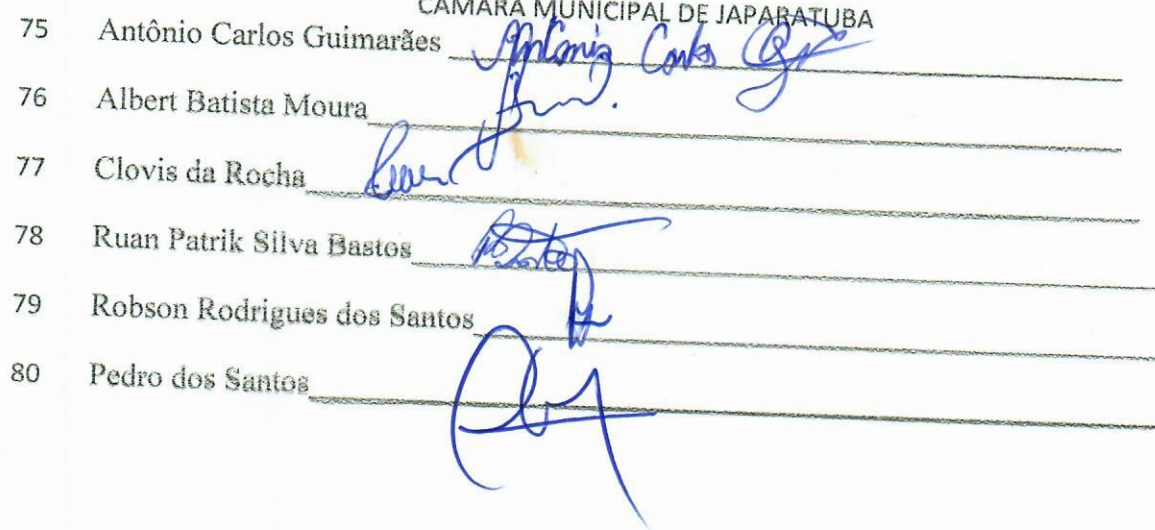 CÂMARA MUNICIPAL DE JAPARATUBA
75 Antônio Carlos Guimarães Antonio Carlos
76 Albert Batista Moura
77 Clovis da Rocha
78 Ruan Patrik Silva Bastos
79 Robson Rodrigues dos Santos
80 Pedro dos Santos